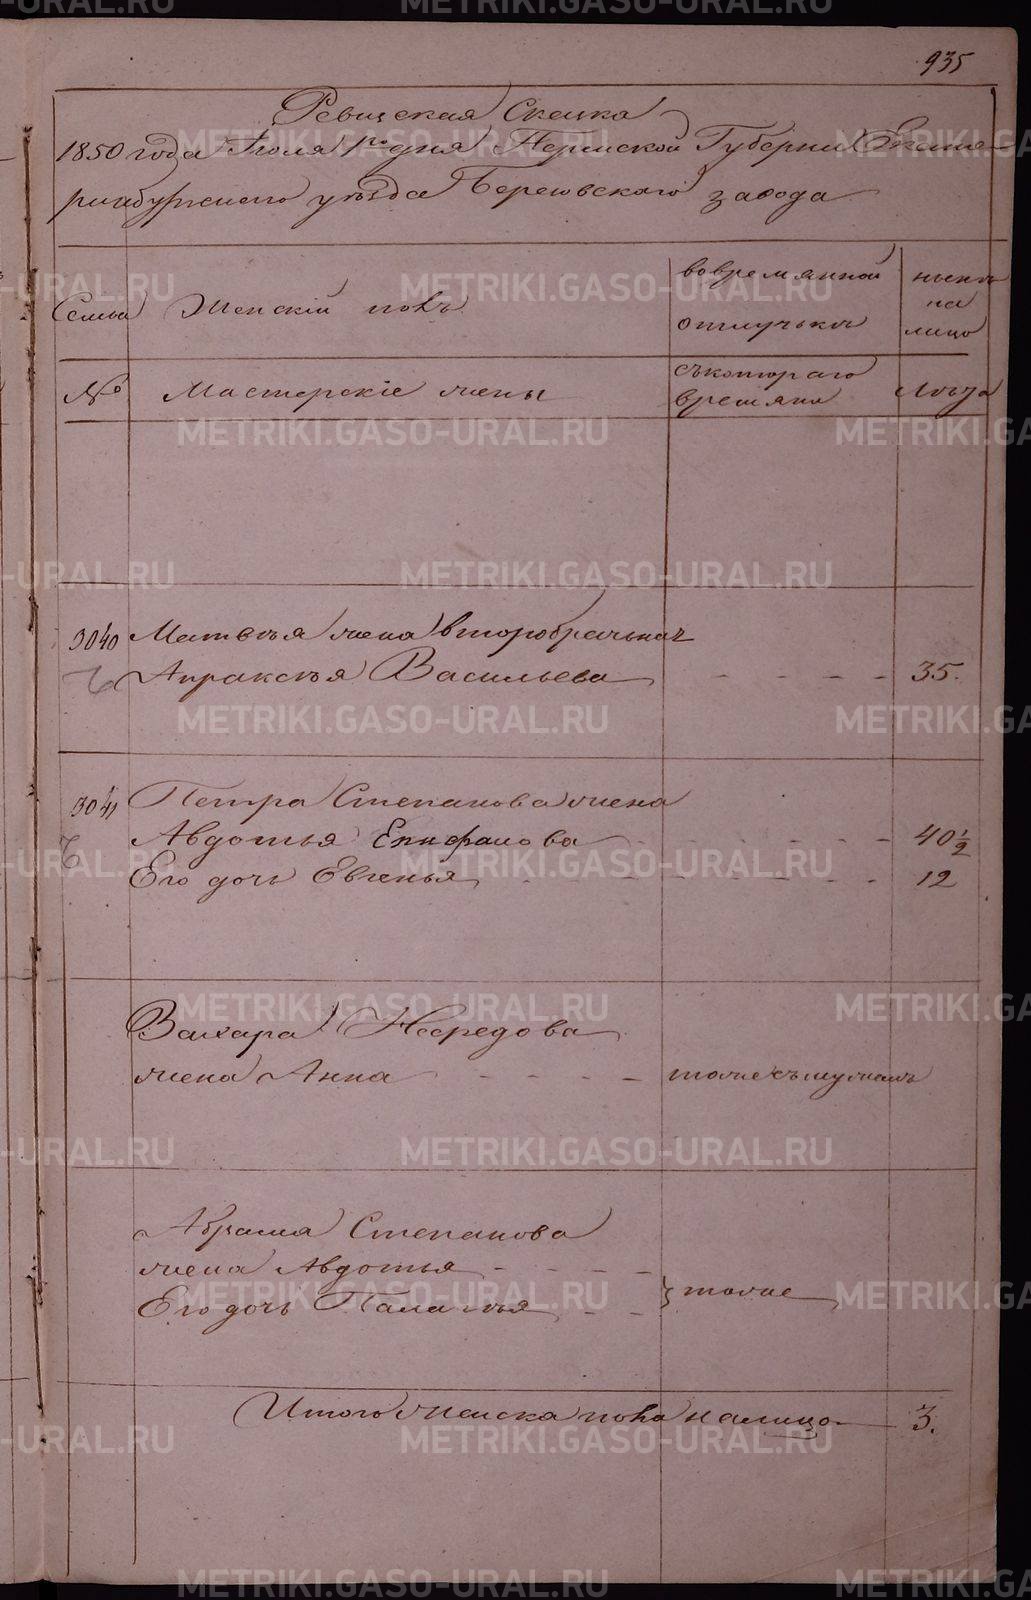 935
Ревиская Скаска
1850 года Июля 1го дня Пермской Губернии Екате-
ринбургскаго уѣзда Березовскаго завода
Семьи
Женскій полъ
во временной
отлучькѣ
нынѣ
на
лицо
№
Мастерскіе жены
съ котораго
времяни
Лѣта
3040 Матвѣя жена второбрачьная
Апраксѣя Васильева - - - - 35.
3041 Петра Степанова жена
Авдотья Епифанова - - - - 40 1/2
Его дочь Евгенья - - - - 12
Захара
жена Анна - - - - тоже съ мужемъ
Абрама Степанова
жена Авдотья - - - -
Его дочь Палагѣя - - } тоже
Итого женска пола на лицо 3.
METRIKI.GASO-URAL.RU